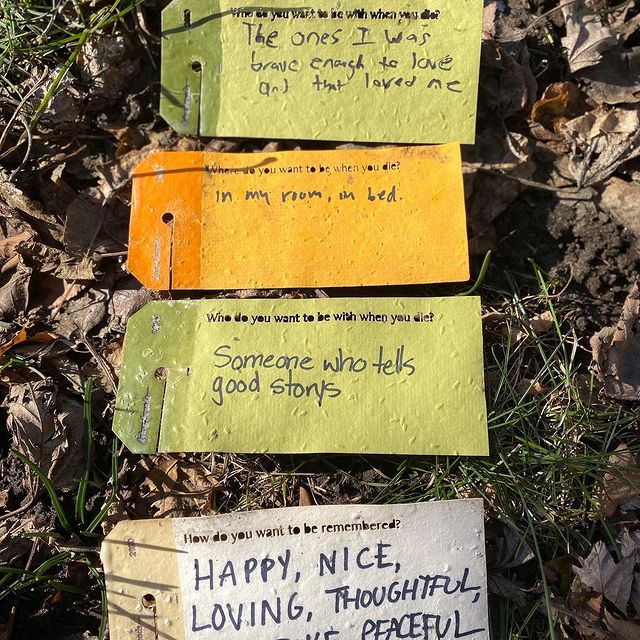 Who do you want to be with when you die?
The ones I was
brave enough to love
and that loved me
Where do you want to be when you die?
in my room, in bed.
Who do you want to be with when you die?
Someone who tells
good storys
How do you want to be remembered?
HAPPY, NICE,
LOVING, THOUGHTFUL,
PEACEFUL